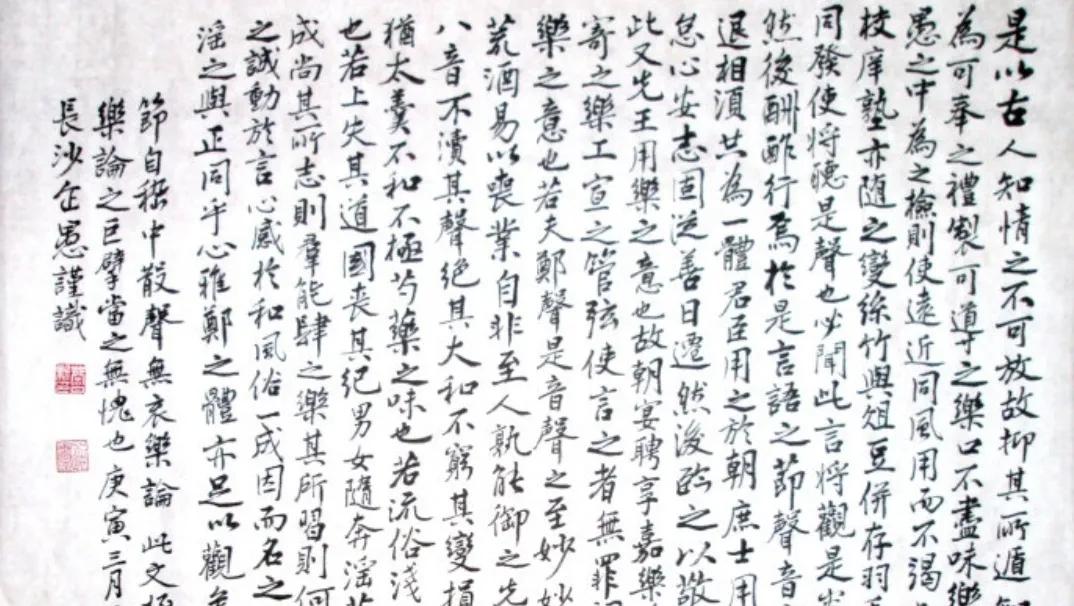 是以古人知情之不可放故抑其所遁
為可奉之禮製可導之樂口不盡味樂
愚之中為之檢則使遠近同風用而不竭
校庠塾亦隨之變絲竹與俎豆併存羽
同發使將聽是聲也必聞此言將觀是
然後酬酢行焉於是言語之節聲音
退相須共為一體君臣用之於朝庶士用
怠心安志固從善日遷然後臨之以敬
此又先王用樂之意也故朝宴聘享嘉樂
寄之樂工宣之管弦使言之者無罪
樂之意也若夫鄭聲是音聲之至妙妙
荒酒易以喪業自非至人孰能御之先
八音不瀆其聲絕其大和不窮其變損
猶太羹不和不極芍藥之味也若流俗淺
也若上失其道國喪其紀男女隨奔淫
成尚其所志則羣能肆之樂其所習則何
之誠動於言心感於和風俗一成因而名之
淫之與正同乎心雅鄭之體亦足以觀
節自嵇中散聲無哀樂論 此文極
樂論之巨擘當之無愧也 庚寅三月
長沙企愚謹識